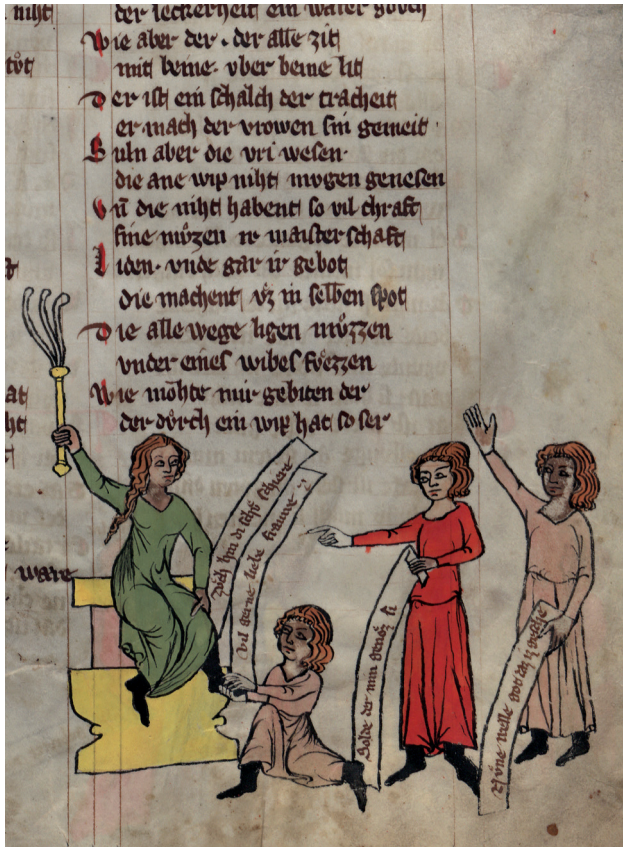 niht
der leckerheit ein warer
Wie aber der · der alle zit
tot
mit beine · vber beine lit
Der ist ein schalch der tracheit
er mach der vrowen sin gemeit
Suln aber die vri wesen ·
die ane wip niht mvgen genesen
Vn̄ die niht habent so vil chraft
sine mvͦzen ir maisterschaft
Liden · vnde gar ir gebot
die machent vz in selben spot
Die alle wege ligen mvͦzzen
vnder eines wibes fvͦezzen
at
Wie mohte mir gebiten der
ht
der dvͦrch ein wip hat so ser
ware
zvch him di schͦ schiere
vil gerne liebe frauwe
solde der min genoz si